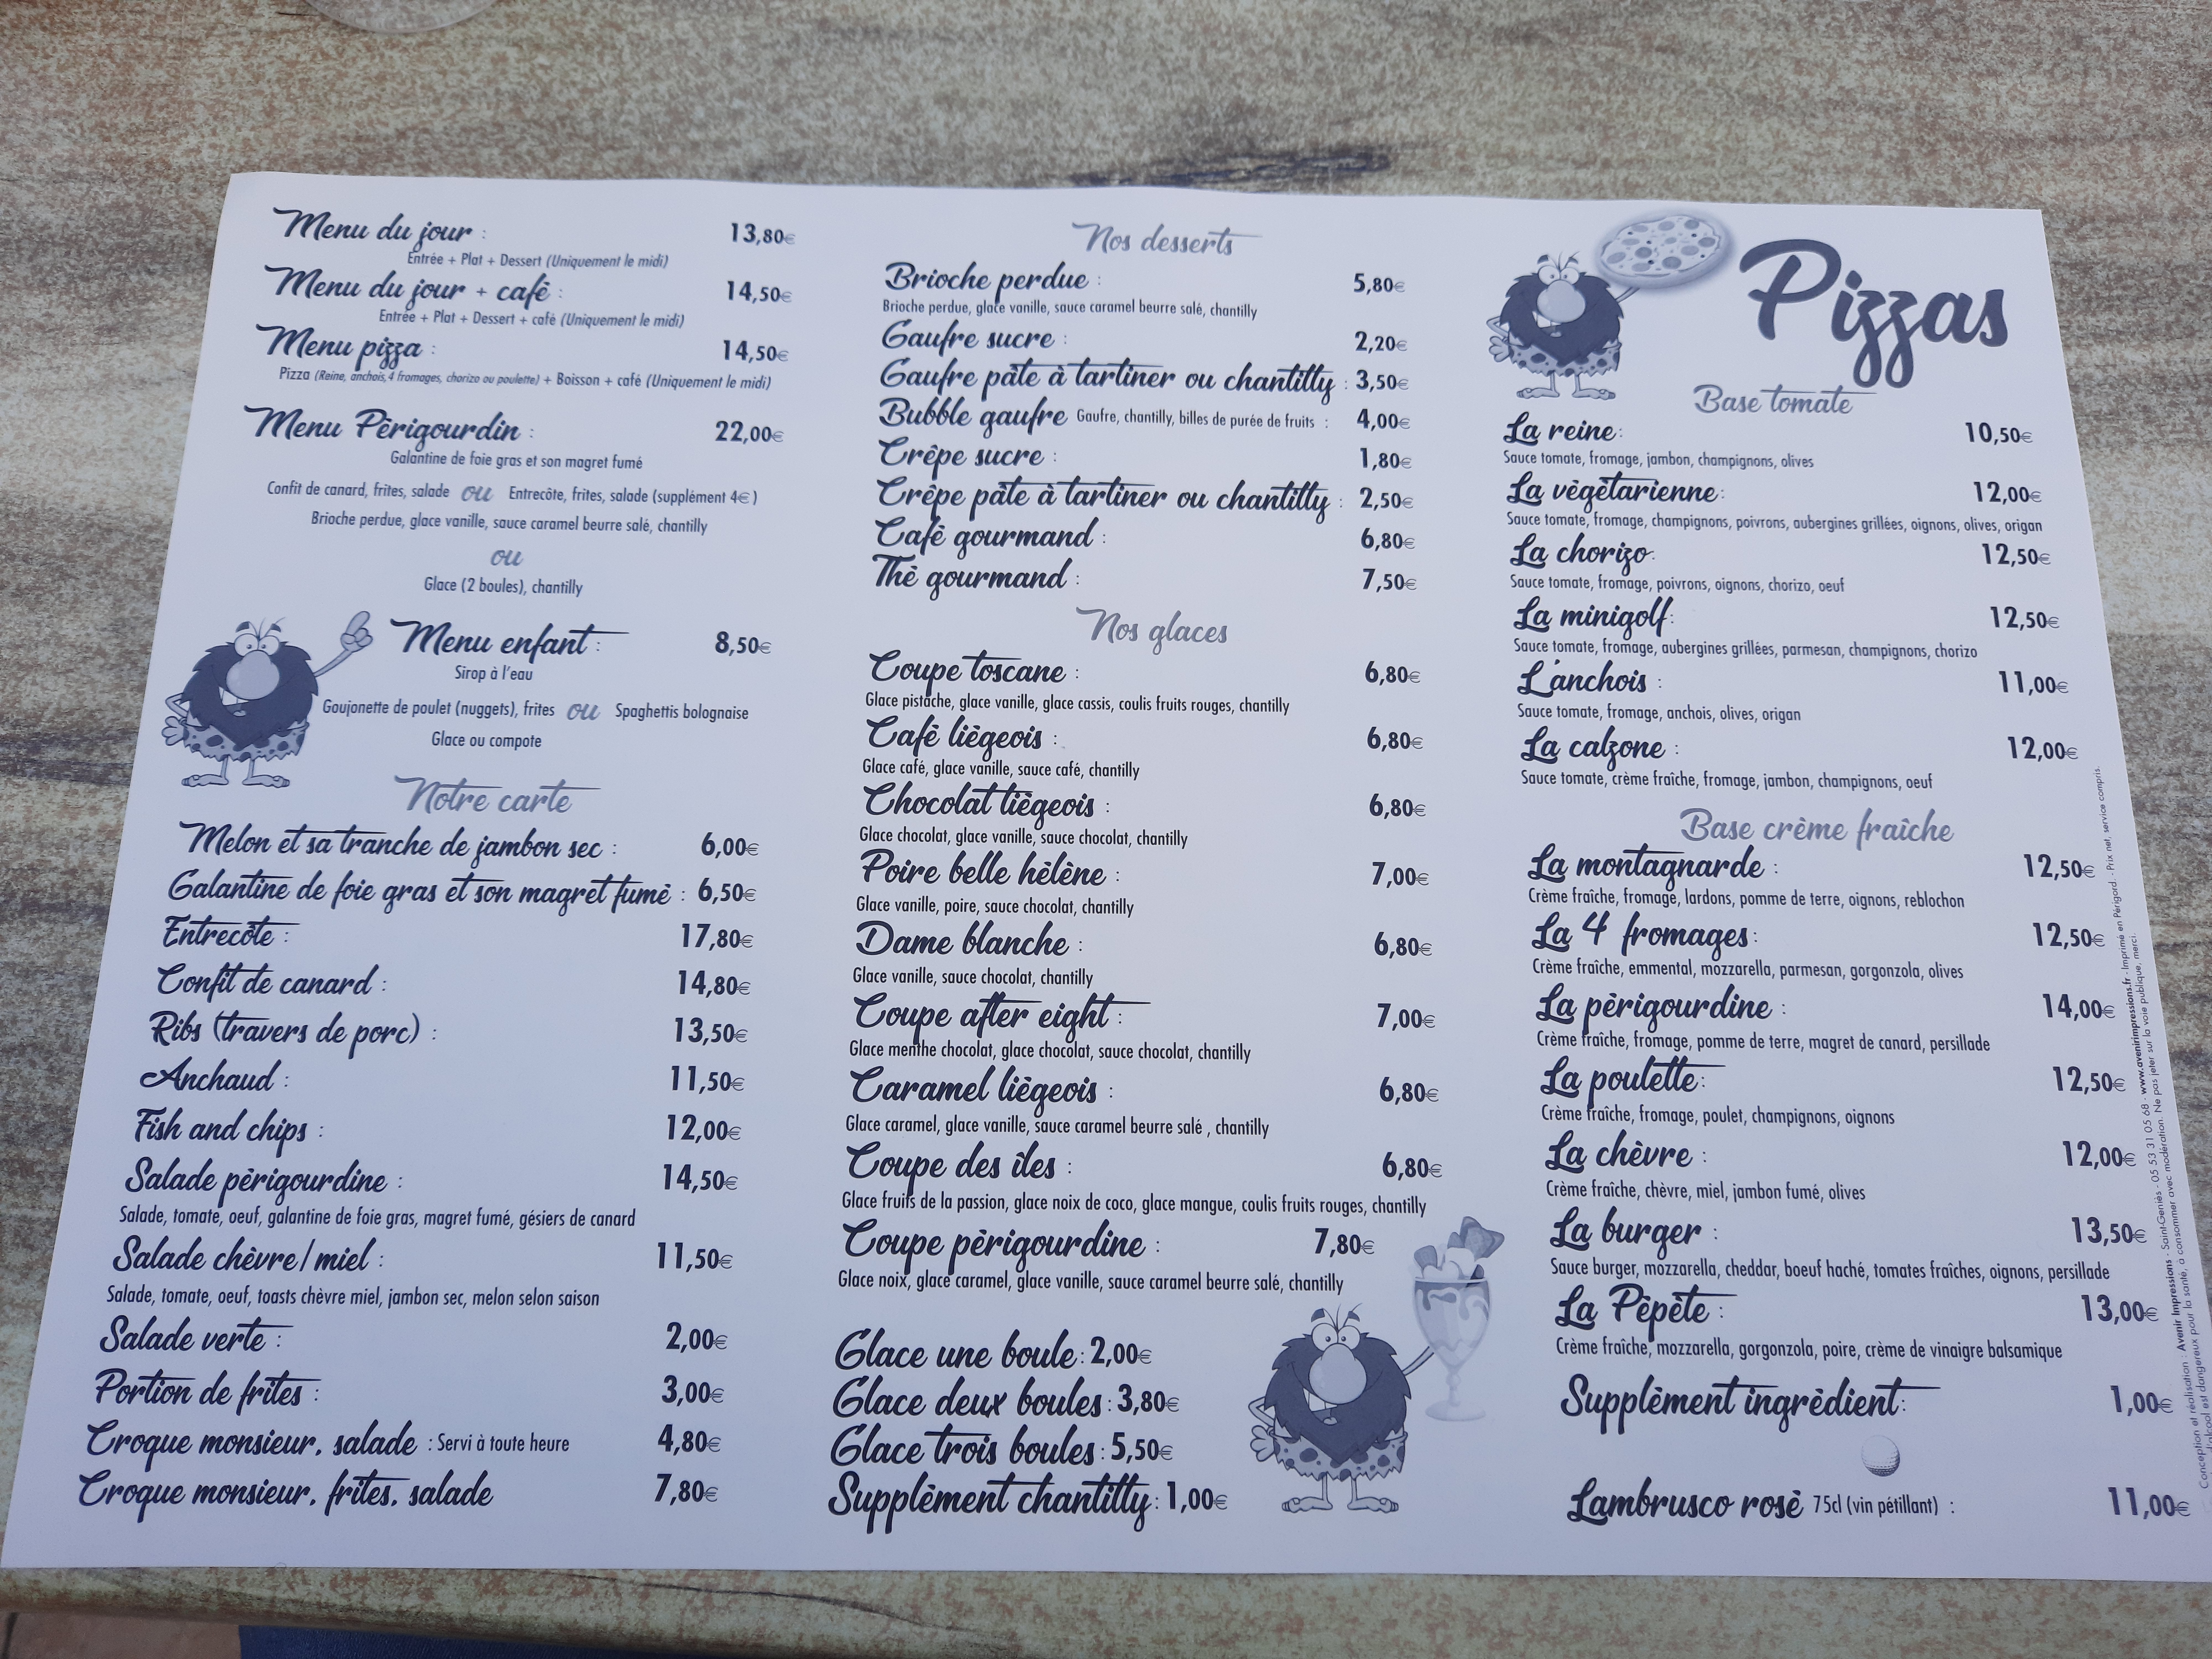 Menu du jour : 13,80€
Entrée + Plat + Dessert (Uniquement le midi)
Menu du jour + café : 14,50€
Entrée + Plat + Dessert + café (Uniquement le midi)
Menu pizza : 14,50€
Pizza (Reine, anchois,4 fromages, chorizo ou poulette) + Boisson + café (Uniquement le midi)
Menu Périgourdin : 22,00€
Galantine de foie gras et son magret fumé
Confit de canard, frites, salade ou Entrecôte, frites, salade (supplément 4€)
Brioche perdue, glace vanille, sauce caramel beurre salé, chantilly
ou
Glace (2 boules), chantilly
Menu enfant : 8,50€
Sirop à l'eau
Goujonette de poulet (nuggets), frites ou Spaghettis bolognaise
Glace ou compote
Notre carte
Melon et sa tranche de jambon sec : 6,00€
Galantine de foie gras et son magret fumé : 6,50€
Entrecôte : 17,80€
Confit de canard : 14,80€
Ribs (travers de porc) : 13,50€
Anchaud : 11,50€
Fish and chips : 12,00€
Salade périgourdine : 14,50€
Salade, tomate, oeuf, galantine de foie gras, magret fumé, gésiers de canard
Salade chèvre/miel : 11,50€
Salade, tomate, oeuf, toasts chèvre miel, jambon sec, melon selon saison
Salade verte : 2,00€
Portion de frites : 3,00€
Croque monsieur, salade : Servi à toute heure 4,80€
Croque monsieur, frites, salade 7,80€
Nos desserts
Brioche perdue : 5,80€
Brioche perdue, glace vanille, sauce caramel beurre salé, chantilly
Gaufre sucre : 2,20€
Gaufre pâte à tartiner ou chantilly : 3,50€
Bubble gaufre Gaufre, chantilly, billes de purée de fruits : 4,00€
Crêpe sucre : 1,80€
Crêpe pâte à tartiner ou chantilly : 2,50€
Café gourmand : 6,80€
Thé gourmand : 7,50€
Nos glaces
Coupe toscane : 6,80€
Glace pistache, glace vanille, glace cassis, coulis fruits rouges, chantilly
Café liégeois : 6,80€
Glace café, glace vanille, sauce café, chantilly
Chocolat liégeois : 6,80€
Glace chocolat, glace vanille, sauce chocolat, chantilly
Poire belle hélène : 7,00€
Glace vanille, poire, sauce chocolat, chantilly
Dame blanche : 6,80€
Glace vanille, sauce chocolat, chantilly
Coupe after eight : 7,00€
Glace menthe chocolat, glace chocolat, sauce chocolat, chantilly
Caramel liégeois : 6,80€
Glace caramel, glace vanille, sauce caramel beurre salé , chantilly
Coupe des îles : 6,80€
Glace fruits de la passion, glace noix de coco, glace mangue, coulis fruits rouges, chantilly
Coupe périgourdine : 7,80€
Glace noix, glace caramel, glace vanille, sauce caramel beurre salé, chantilly
Glace une boule : 2,00€
Glace deux boules : 3,80€
Glace trois boules : 5,50€
Supplément chantilly : 1,00€
Pizzas
Base tomate
La reine : 10,50€
Sauce tomate, fromage, jambon, champignons, olives
La végétarienne : 12,00€
Sauce tomate, fromage, champignons, poivrons, aubergines grillées, oignons, olives, origan
La chorizo : 12,50€
Sauce tomate, fromage, poivrons, oignons, chorizo, oeuf
La minigolf : 12,50€
Sauce tomate, fromage, aubergines grillées, parmesan, champignons, chorizo
L'anchois : 11,00€
Sauce tomate, fromage, anchois, olives, origan
La calzone : 12,00€
Sauce tomate, crème fraîche, fromage, jambon, champignons, oeuf
Base crème fraîche
La montagnarde : 12,50€
Crème fraîche, fromage, lardons, pomme de terre, oignons, reblochon
La 4 fromages : 12,50€
Crème fraîche, emmental, mozzarella, parmesan, gorgonzola, olives
La périgourdine : 14,00€
Crème fraîche, fromage, pomme de terre, magret de canard, persillade
La poulette : 12,50€
Crème fraîche, fromage, poulet, champignons, oignons
La chèvre : 12,00€
Crème fraîche, chèvre, miel, jambon fumé, olives
La burger : 13,50€
Sauce burger, mozzarella, cheddar, boeuf haché, tomates fraîches, oignons, persillade
La Pépète : 13,00€
Crème fraîche, mozzarella, gorgonzola, poire, crème de vinaigre balsamique
Supplément ingrédient : 1,00€
Lambrusco rosé 75cl (vin pétillant) : 11,00€
Conception et réalisation : Avenir Impressions - Saint-Geniès - 05 53 31 05 68 - www.avenirimpressions.fr - Imprimé en Périgord. - Prix net, service compris.
l'alcool est dangereux pour la santé, à consommer avec modération. Ne pas jeter sur la voie publique, merci.